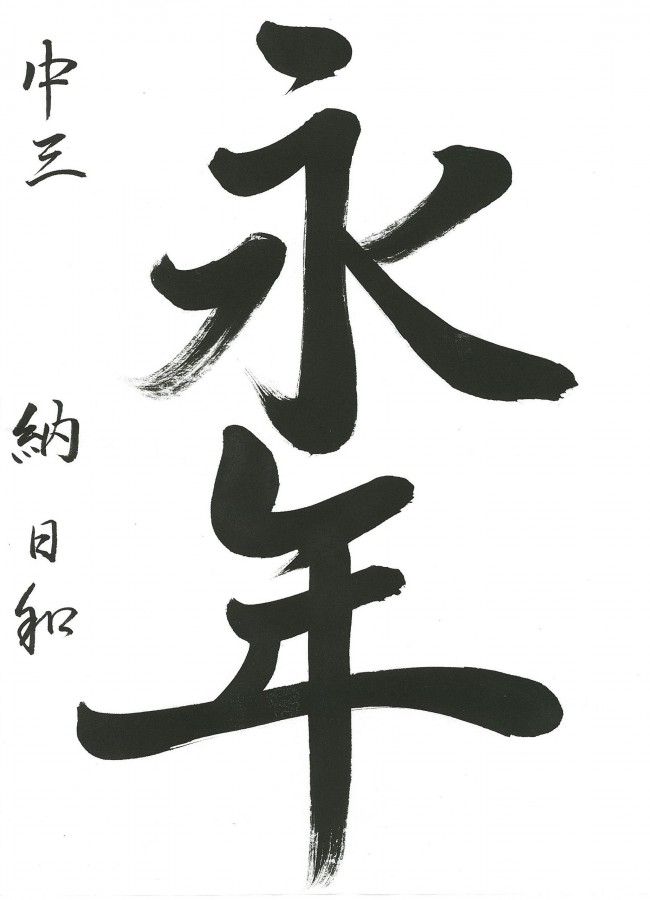 永年
中三 納 日和